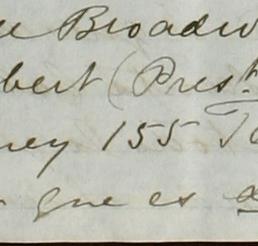 Broadw
bert (Prest
ney 155
que es